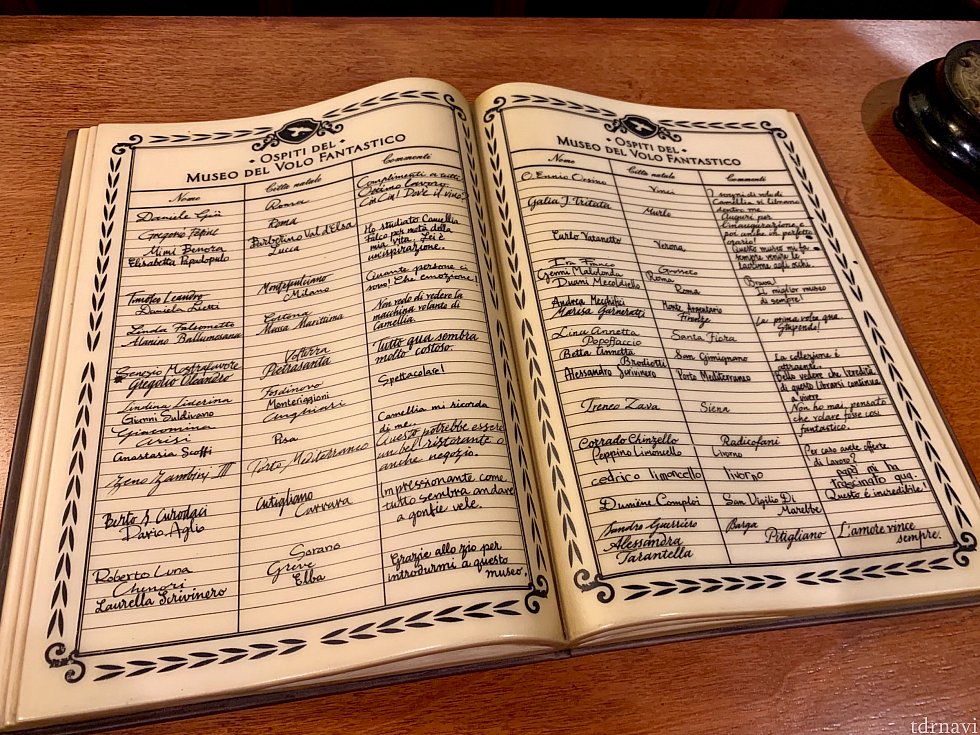 OSPITI DEL
MUSEO DEL VOLO FANTASTICO
Nome Citta natale Commenti
Daniele Roma Complimenti a tutti
Gregorio Roma Ottimo lavoro
Mimi Benora Barberino Val d'Elsa CinCin! Dove il vino?
Elisabetta Papulopulo Lucca Ho studiato Camellia
Falco per metà della
mia vita. Lei è
un'ispirazione.
Timoteo Leandro Montepulciano Quante persone ci
Daniela Milano sono! Che emozione!
Linda Falsometto Cortona Non vedo di vedere la
Alanino Ballumaiana Massa Marittima macchina volante di
Camellia.
Genesio Mostrafavore Volterra Tutto qua sembra
Gregolio Oleandro Pietrasanta molto costoso.
Lindina Liderina Fosdinovo Spettacolare!
Gianni Saldivano Monteriggioni
Giacomina Anghiari
Arisi
Anastasia Scoffi Pisa Camellia mi ricorda
di me.
Zeno Zambini III Porto Mediterraneo Questo potrebbe essere
un bel ristorante o
anche negozio.
Berto S Curodaci Cutigliano Impressionante come
Dario Aglio Carrara tutto sembra andare
a gonfie vele.
Roberto Luna Sorano Grazie allo zio per
Chenori Greve introdurmi a questo
Laurella Scrivinero Elba museo.
OSPITI DEL
MUSEO DEL VOLO FANTASTICO
Nome Citta natale Commenti
O. Ennio Orsino Vinci I sogni di volo di
Galia J. Tritata Murlo Camellia si librano
dentro me
Auguri per
l'inaugurazione e
poi anche in perfetto
orario!
Carlo Vatanetto Verona Questo museo mi fa
sempre venire le
lacrime agli occhi
Ira Franco Grosseto Bravo!
Genni Malolonda Roma Il miglior museo
Duani Mecoldiello Roma di sempre!
Andrea Mecchifei Monte Argentario La prima volta qua.
Marisa Garneratti Firenze Stupendo!
Lina Annetta Santa Fiora
Popoffaccio
Betta Annetta San Gimignano La collezione è
Brodiotti attraente.
Alessandro Scrivinero Porto Mediterraneo Bello vedere che l'eredità
di questo librarsi continua
a vivere
Ireneo Zava Siena Non ho mai pensato
che volare fosse così
fantastico.
Corrado Chinzello Radicofani Per caso avete offerte
Peppino Limonuello Livorno di lavoro?
cedrico limoncello livorno papà mi ha
trascinato qua.
Dumëne Comploi San Vigilio Di Questo è incredibile!
Marebbe
Sandro Guerriero Barga
Alessandra Pitigliano L'amore vince
Tarantella sempre.
tdrnavi